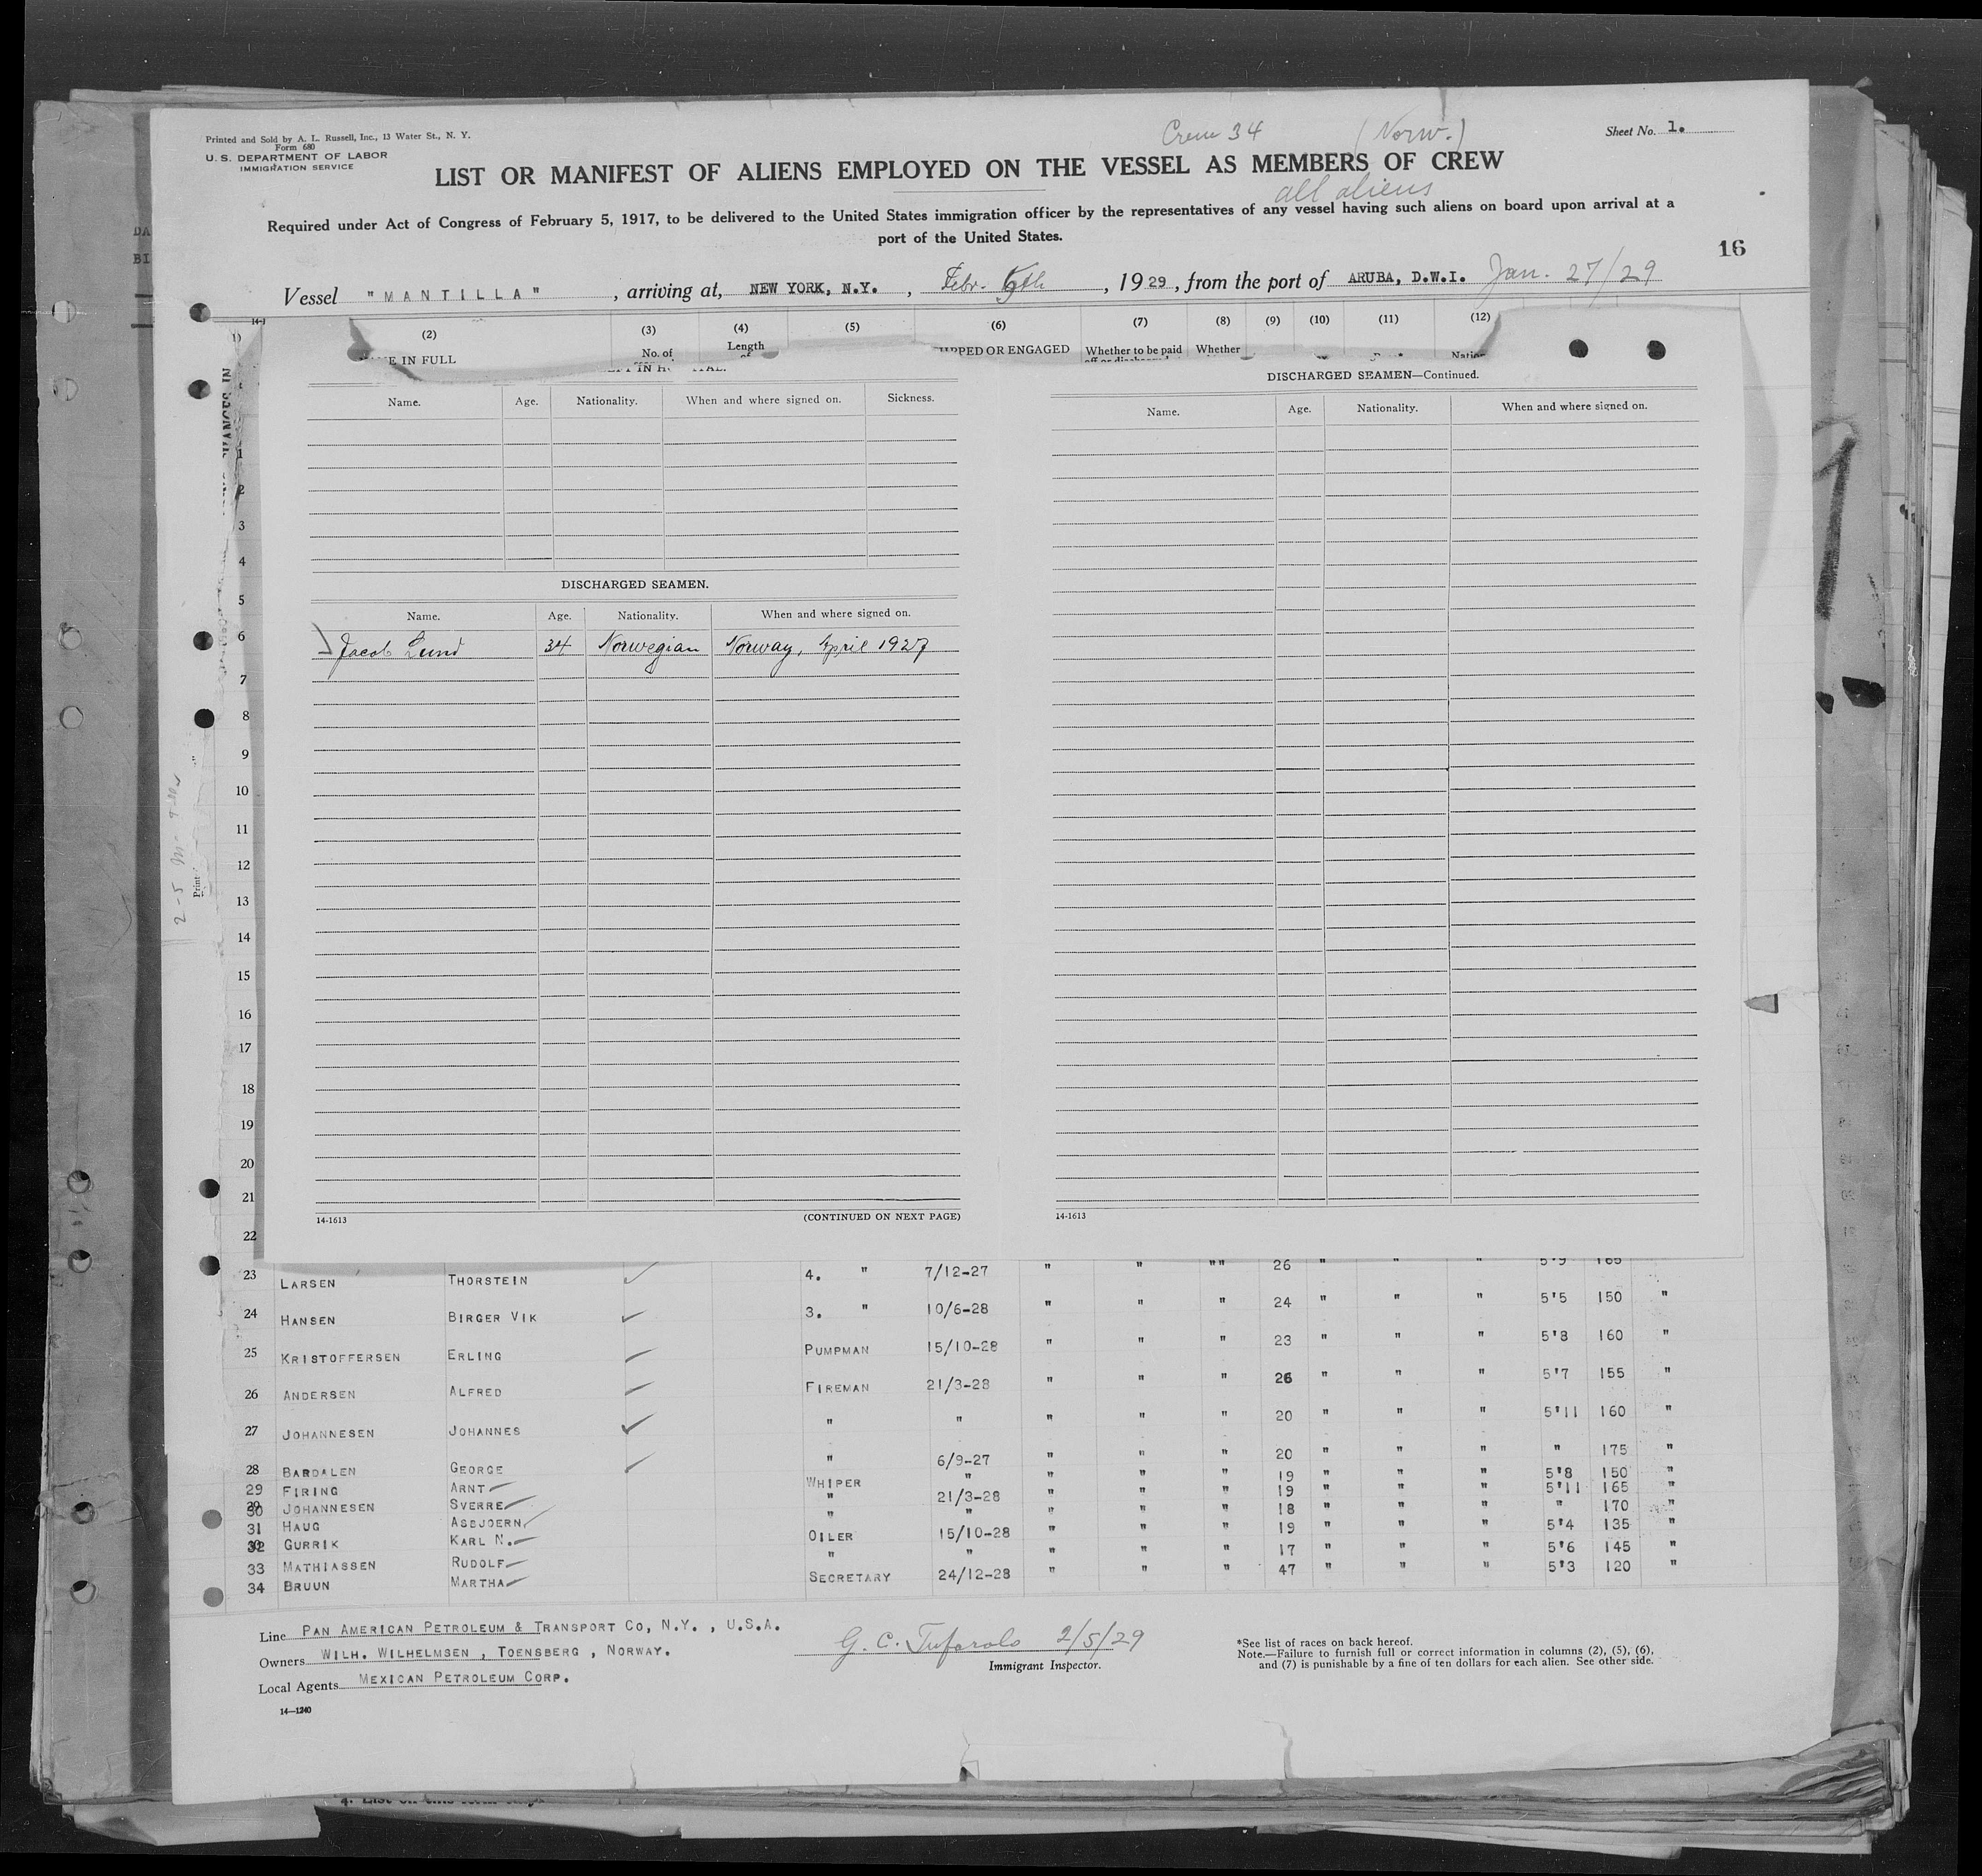 Printed and Sold by A. L. Russell, Inc., 13 Water St., N. Y.
Form 680
U. S. DEPARTMENT OF LABOR
IMMIGRATION SERVICE
Crew 34 (Norw.)
Sheet No. 1.
LIST OR MANIFEST OF ALIENS EMPLOYED ON THE VESSEL AS MEMBERS OF CREW
all aliens
Required under Act of Congress of February 5, 1917, to be delivered to the United States immigration officer by the representatives of any vessel having such aliens on board upon arrival at a
port of the United States.
16
Vessel "MANTILLA", arriving at, NEW YORK, N.Y., Febr. 5th, 1929, from the port of ARUBA, D.W.I. Jan. 27/29
(2) (3) (4) (5) (6) (7) (8) (9) (10) (11) (12)
IN FULL No. of Length OR ENGAGED Whether to be paid Whether
DISCHARGED SEAMEN—Continued.
Name. Age. Nationality. When and where signed on. Sickness.
Name. Age. Nationality. When and where signed on.
DISCHARGED SEAMEN.
Name. Age. Nationality. When and where signed on.
Jacob Lund 34 Norwegian Norway, April 1927
1
2
3
4
5
6
7
8
9
10
11
12
13
14
15
16
17
18
19
20
21
22
14-1613 (CONTINUED ON NEXT PAGE) 14-1613
23 LARSEN THORSTEIN 4. " 7/12-27 " " "" 26 " " " 5'9 165
24 HANSEN BIRGER VIK 3. " 10/6-28 " " " 24 " " " 5'5 150 "
25 KRISTOFFERSEN ERLING PUMPMAN 15/10-28 " " " 23 " " " 5'8 160 "
26 ANDERSEN ALFRED FIREMAN 21/3-28 " " " 26 " " " 5'7 155 "
27 JOHANNESEN JOHANNES " " " " " 20 " " " 5'11 160 "
28 BARDALEN GEORGE " 6/9-27 " " " 20 " " " " 175 "
29 FIRING ARNT WHIPER " " " " 19 " " " 5'8 150 "
30 JOHANNESEN SVERRE " 21/3-28 " " " 19 " " " 5'11 165 "
31 HAUG ASBJOERN " " " " " 18 " " " " 170 "
32 GURRIK KARL N. OILER 15/10-28 " " " 19 " " " 5'4 135 "
33 MATHIASSEN RUDOLF " " " " " 17 " " " 5'6 145 "
34 BRUUN MARTHA SECRETARY 24/12-28 " " " 47 " " " 5'3 120 "
Line PAN AMERICAN PETROLEUM & TRANSPORT CO, N.Y. , U.S.A.
Owners WILH. WILHELMSEN , TOENSBERG , NORWAY.
Local Agents MEXICAN PETROLEUM CORP.
14—1240
G. C. Tufarolo 2/5/29
Immigrant Inspector.
*See list of races on back hereof.
Note.—Failure to furnish full or correct information in columns (2), (5), (6),
and (7) is punishable by a fine of ten dollars for each alien. See other side.